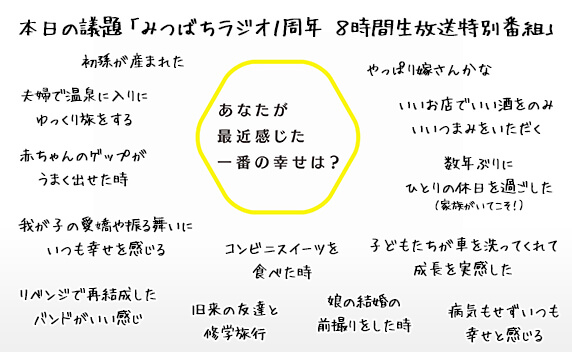 本日の議題「みつばちラジオ1周年 8時間生放送特別番組」
初孫が産まれた
やっぱり嫁さんかな
夫婦で温泉に入りに
ゆっくり旅をする
あなたが
最近感じた
一番の幸せは？
いいお店でいい酒をのみ
いいつまみをいただく
赤ちゃんのゲップが
うまく出せた時
数年ぶりに
ひとりの休日を過ごした
（家族がいてこそ！）
我が子の愛嬌や振る舞いに
いつも幸せを感じる
コンビニスイーツを
食べた時
子どもたちが車を洗ってくれて
成長を実感した
リベンジで再結成した
バンドがいい感じ
旧来の友達と
修学旅行
娘の結婚の
前撮りをした時
病気もせずいつも
幸せと感じる